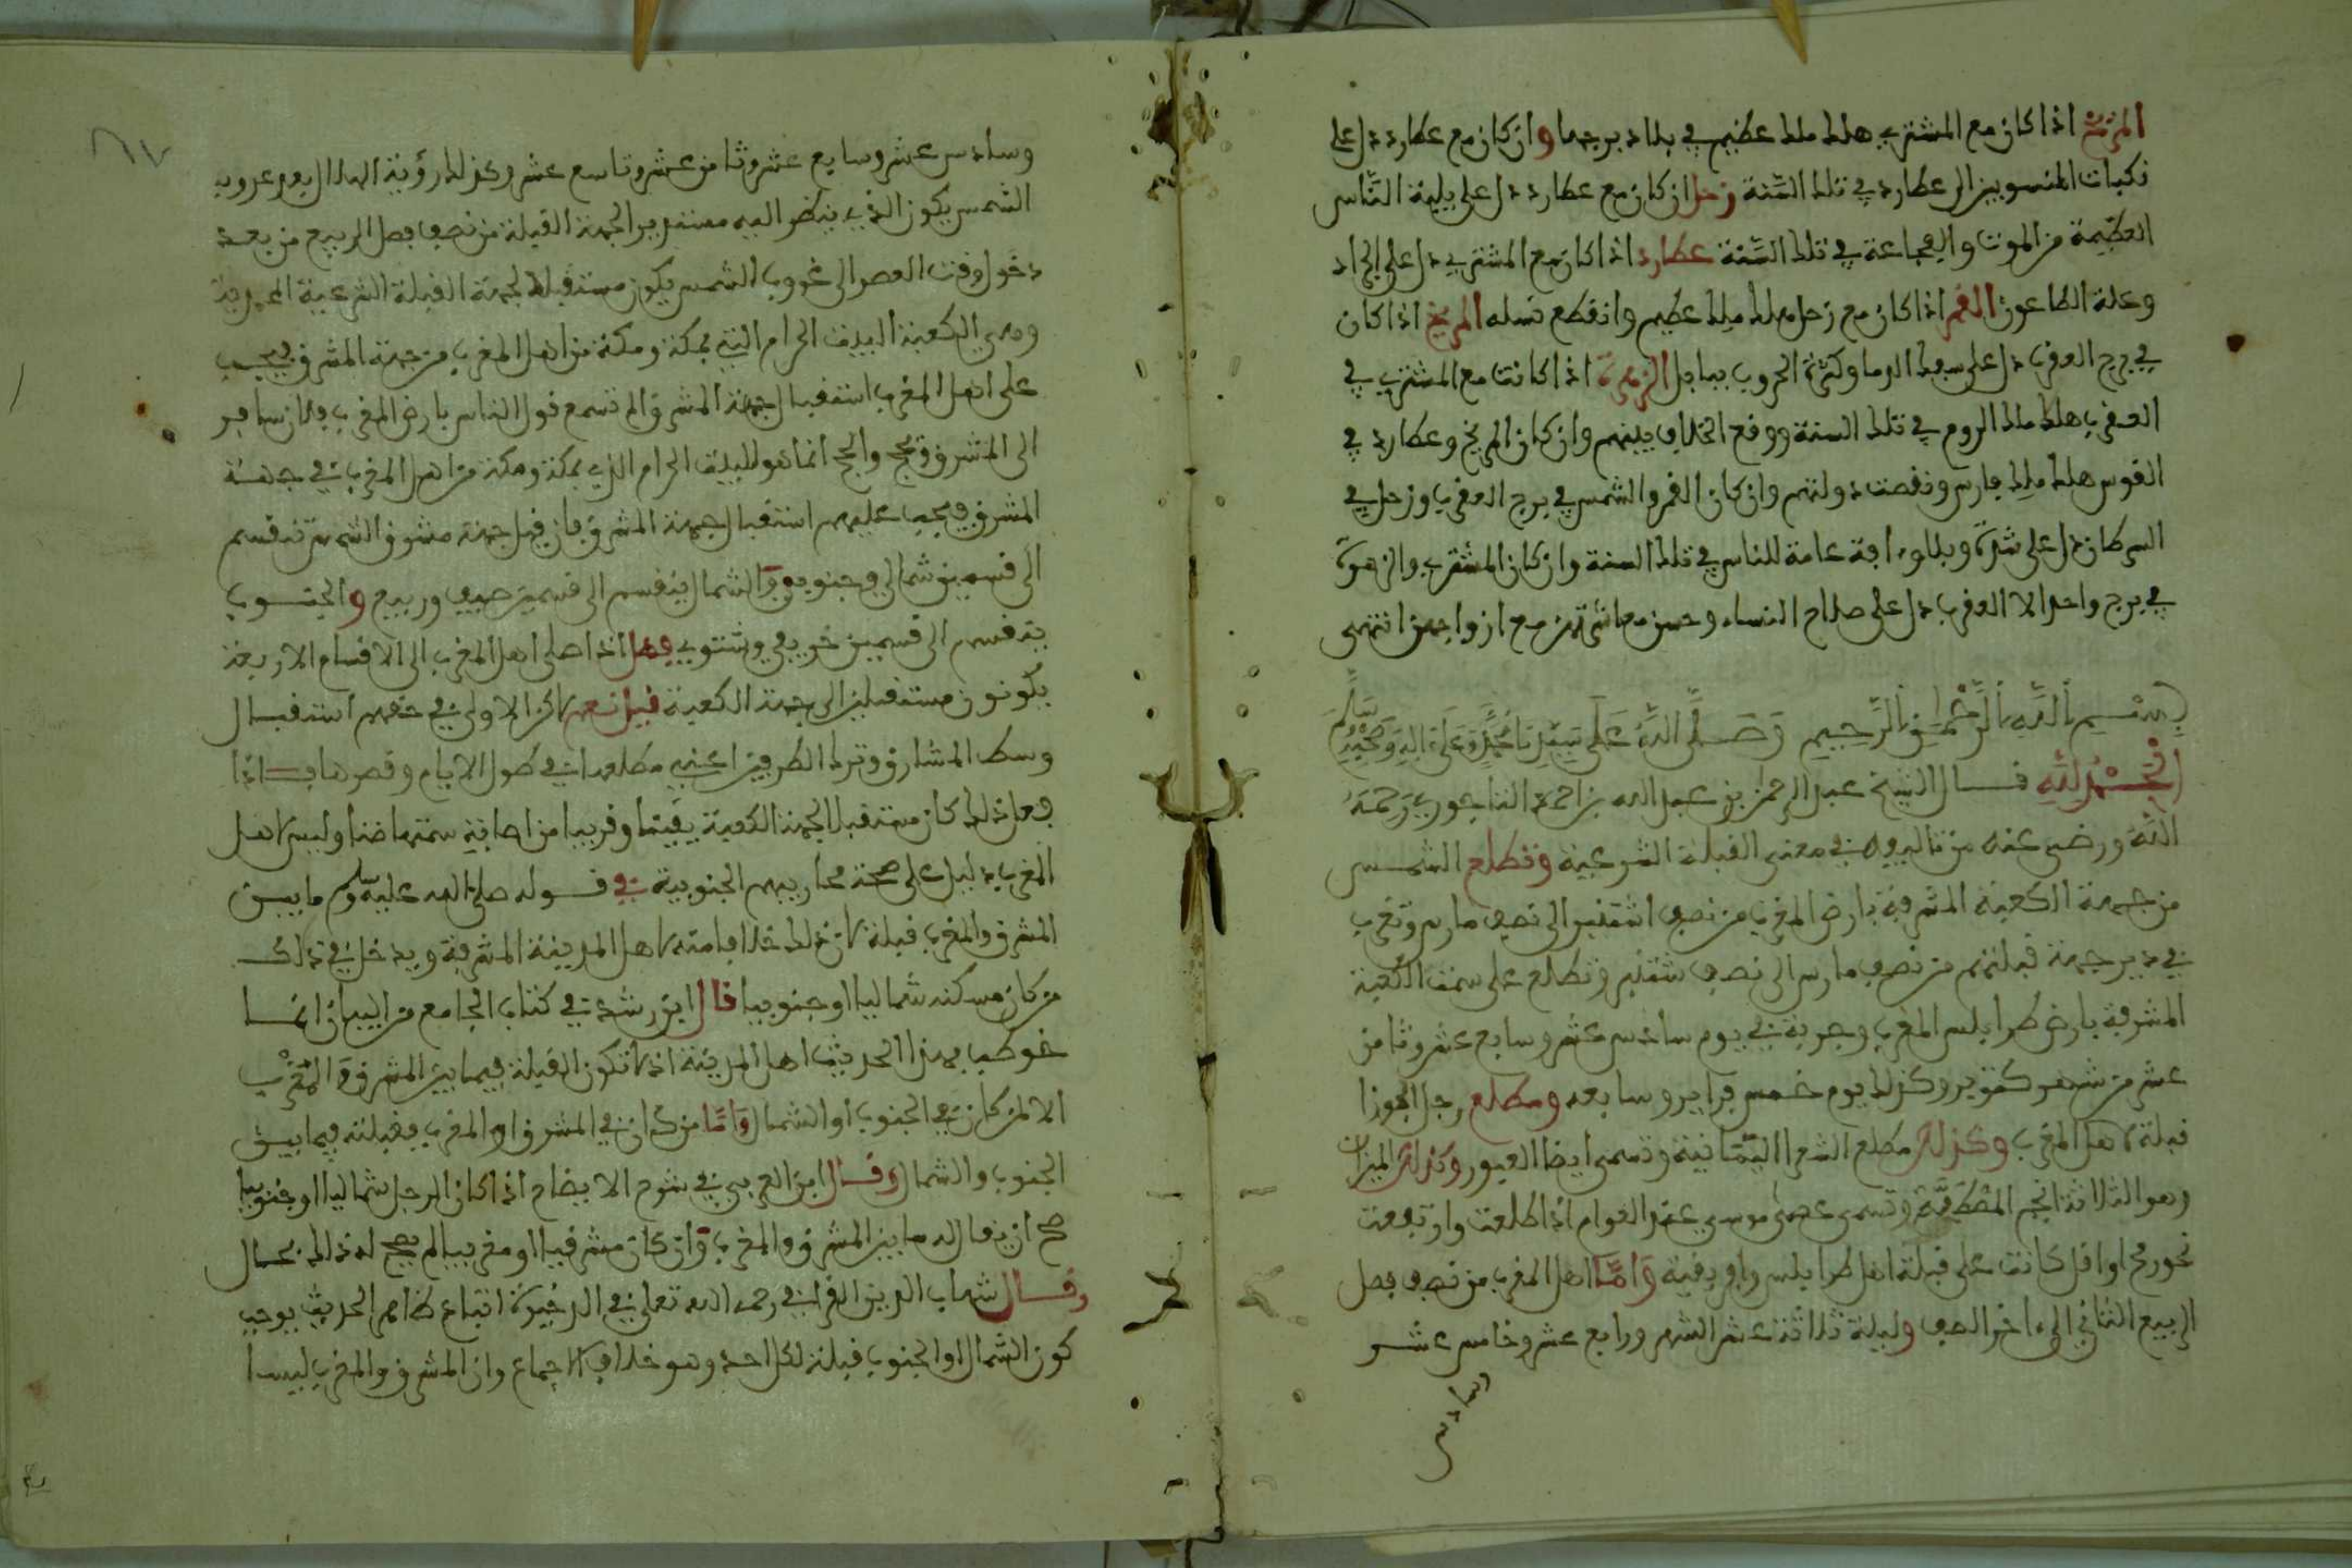 المريخ اذا كان مع المشتري هلك ملك عظيم في بلاد برجهما وان كان مع عطارد دل على
نكبات المنسوبين الى عطارد في تلك السنة زحل ان كان مع عطارد دل على بلية الناس
العظيمة من الموت والمجاعة في تلك السنة عطارد اذا كان مع المشتري دل على الجراد
وعلة الطاعون القمر اذا كان مع زحل هلك ملك عظيم وانقطع نسله المريخ اذا كان
في برج العقرب دل على سفك الدما وكثرة الحروب ببابل الزهرة اذا كانت مع المشتري في
العقرب هلك ملك الروم في تلك السنة ووقع الخلاف بينهم وان كان المريخ وعطارد في
القوس هلك ملك فارس ونقصت دولتهم وان كان القمر والشمس في برج العقرب وزحل في
السرطان دل على شدة وبلاء وافة عامة للناس في تلك السنة وان كان المشتري والزهرة
في برج واحد الا العقرب دل على صلاح النساء وحسن معاشرتهن مع ازواجهن انتهى
بسم الله الرحمن الرحيم وصلى الله على سيدنا محمد وعلى اله وصحبه وسلم
الحمد لله قال الشيخ عبد الرحمن بن عبد الله بن احمد التاجوري رحمه
الله ورضي عنه من تاليفه في معنى القبلة الشرعية وتطلع الشمس
من جهة الكعبة المشرفة بارض المغرب من نصف اشتنبر الى نصف مارس وتغرب
في دبر جهة قبلتهم من نصف مارس الى نصف شتنبر وتطلع على سمت الكعبة
المشرفة بارض طرابلس المغرب وجربة في يوم سادس عشر وسابع عشر وثامن
عشر من شهر كتوبر وكذلك يوم خمس فراير وسابعه ومطلع رجل الجوزا
قبلة لاهل المغرب وكذلك مطلع الشعرا اليمانية وتسمى ايضا العبور وكذلك الميزان
وهو الثلاثة انجم المصطفة وتسمى عصى موسي عند العوام اذا طلعت وارتفعت
نحو رمح اواقل كانت على قبلة اهل طرابلس وافريقية واما اهل المغرب من نصف فصل
الربيع الثاني الى ءاخر الصيف وليلة ثلاثة عشر الشهر ورابع عشر وخامس عشر
وسادس
وسادس عشر وسابع عشر وثامن عشر وتاسع عشر وكذلك رؤية الهلال بعد غروب
الشمس يكون الذي ينظر اليه مستدبر الجهة القبلة من نصف فصل الربيع من بعد
دخول وقت العصر الى غروب الشمس يكون مستقبلا لجهة القبلة الشرعية
وهي الكعبة البيت الحرام التي بمكة ومكة من اهل المغرب من جهة المشرق فيجب
على اهل المغرب استقبال جهة المشرق الم تسمع قول الناس بارض المغرب فلان سافر
الى المشرق فحج والحج انما هو للبيت الحرام الذي بمكة ومكة من اهل المغرب في جهة
المشرق فيجب عليهم استقبال جهة المشرق فان قيل جهة مشرق الشمس تنقسم
الى قسمين شمالي وجنوبي والشمال ينقسم الى قسمين صيف وربيع والجنوب
ينقسم الى قسمين خريفي وشتوي فهل اذا صلى اهل المغرب الى الاقسام الاربعة
يكونون مستقبلين الى جهة الكعبة قيل نعم لاكن الاولى في حقهم استقبال
وسط المشارق وترك الطرفين اعني مطلعها في طول الايام وقصرها فاذا
فعل ذلك كان مستقبلا لجهة الكعبة يقينا وقريبا من اصابة سمتها ظنا وليس لاهل
المغرب دليل على صحة محاريبهم الجنوبية في قوله صلى الله عليه وسلم ما بين
المشرق والمغرب قبلة لان ذلك خلافا منه لاهل المدينة المشرفة ويدخل في ذلك
من كان مسكنه شماليا او جنوبيا قال ابن رشد في كتاب الجامع من البيان انما
خوطب بهذا الحديث اهل المدينة اذ لا تكون القبلة فيما بين المشرق والمغرب
الا لمن كان في الجنوب او الشمال واما من كان في المشرق او المغرب فقبلته فيما بين
الجنوب والشمال وقال ابن العربي في شرح الايضاح اذا كان الرجل شماليا او جنوبيا
صح ان يقال له ما بين المشرق والمغرب وان كان مشرقيا او مغربيا لم يصح له ذلك بحال
وقال شهاب الدين القرافي رحمه الله تعلى في الذخيرة اتباع ظاهر الحديث يوجب
كون الشمال او الجنوب قبلة لكل احد وهو خلاف الاجماع وان المشرق والمغرب ليسا